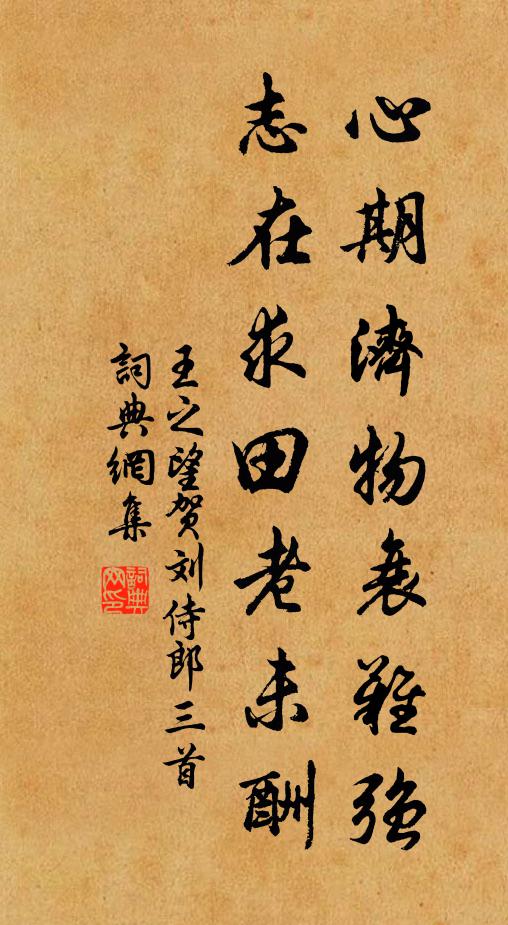 心期濟物衰難強
志在求田老未酬
王之望賀刘侍郎三首
詞典網集
詞典網印